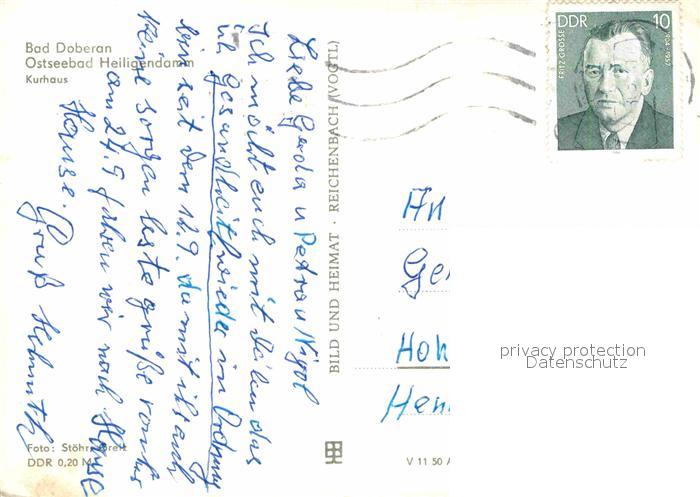 Bad Doberan
Ostseebad Heiligendamm
Kurhaus
Liebe Gerda u Petra u Nigol
Ich möcht euch mit teilen das
ich gesundheit wieder in Ordnung
bin seit dem 12.9. da mit ihr auch
keine sorgen beste grüße von
am 24.9 fahren wir nach Hause
Hause. Gruß Helmuth
Foto: Stöhr,
DDR 0,20 M
BILD UND HEIMAT · REICHENBACH (VOGTL)
V 11 50
DDR 10
FRITZ GROSSE 1904-1957
An
Ge
Hoh
Hen
privacy protection
Datenschutz